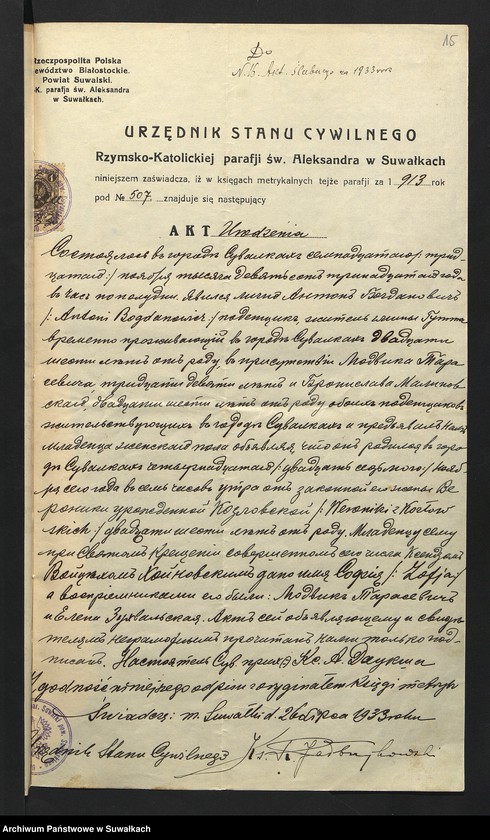 15
Do
N. 16. Akt. ślubnego na 1933 rok
Rzeczpospolita Polska
ewództwo Białostockie.
Powiat Suwalski.
-K. parafja św. Aleksandra
w Suwałkach.
URZĘDNIK STANU CYWILNEGO
Rzymsko-Katolickiej parafji św. Aleksandra w Suwałkach
niniejszem zaświadcza, iż w księgach metrykalnych tejże parafji za 1 913 rok
pod № 507. znajduje się następujący
AKT Urodzenia
Состоялось въ городѣ Сувалкахъ семнадцатаго /: трид-
цатаго :/ ноября тысяча девятьсотъ тринадцатаго года
въ часъ по полудни. Явился лично Антонъ Богдановичъ
/: Antoni Bogdanowicz :/ поденщикъ, житель гмины Гутта
временно проживающій въ городѣ Сувалкахъ двадцати
шести лѣтъ отъ роду, въ присутствіи Людвика Тара-
севича тридцати девяти лѣтъ и Бронислава Малинов-
скаго, двадцати шести лѣтъ отъ роду обоихъ поденщиковъ
жительствующихъ въ городѣ Сувалкахъ и предъявилъ Намъ
младенца женскаго пола объявляя, что онъ родился въ горо-
дѣ Сувалкахъ четырнадцатаго /: двадцать седьмого :/ нояб-
ря сего года въ семь часовъ утра отъ законной его жены Ве-
роники урожденной Козловской /: Weroniki z Kozłow
skich :/ двадцати шести лѣтъ отъ роду. Младенцу сему
при Святомъ Крещеніи совершенномъ сего числа Ксендзомъ
Войцѣхомъ Хойновскимъ дано имя Софія /: Zofja :/
а воспріемниками его были: Людвикъ Тарасевичъ
и Елена Актъ сей объявляющему и свидѣ-
телямъ неграмотнымъ прочитанъ Нами только под-
писанъ. Настоятель Сув. прихода Кс. А. Даукша
Zgodność niniejszego odpisu z oryginałem księgi metryk
Świadczę: m. Suwałki d. 26 lipca 1933 roku
Urzędnik Stanu Cywilnego Ks.
Archiwum Państwowe w Suwałkach